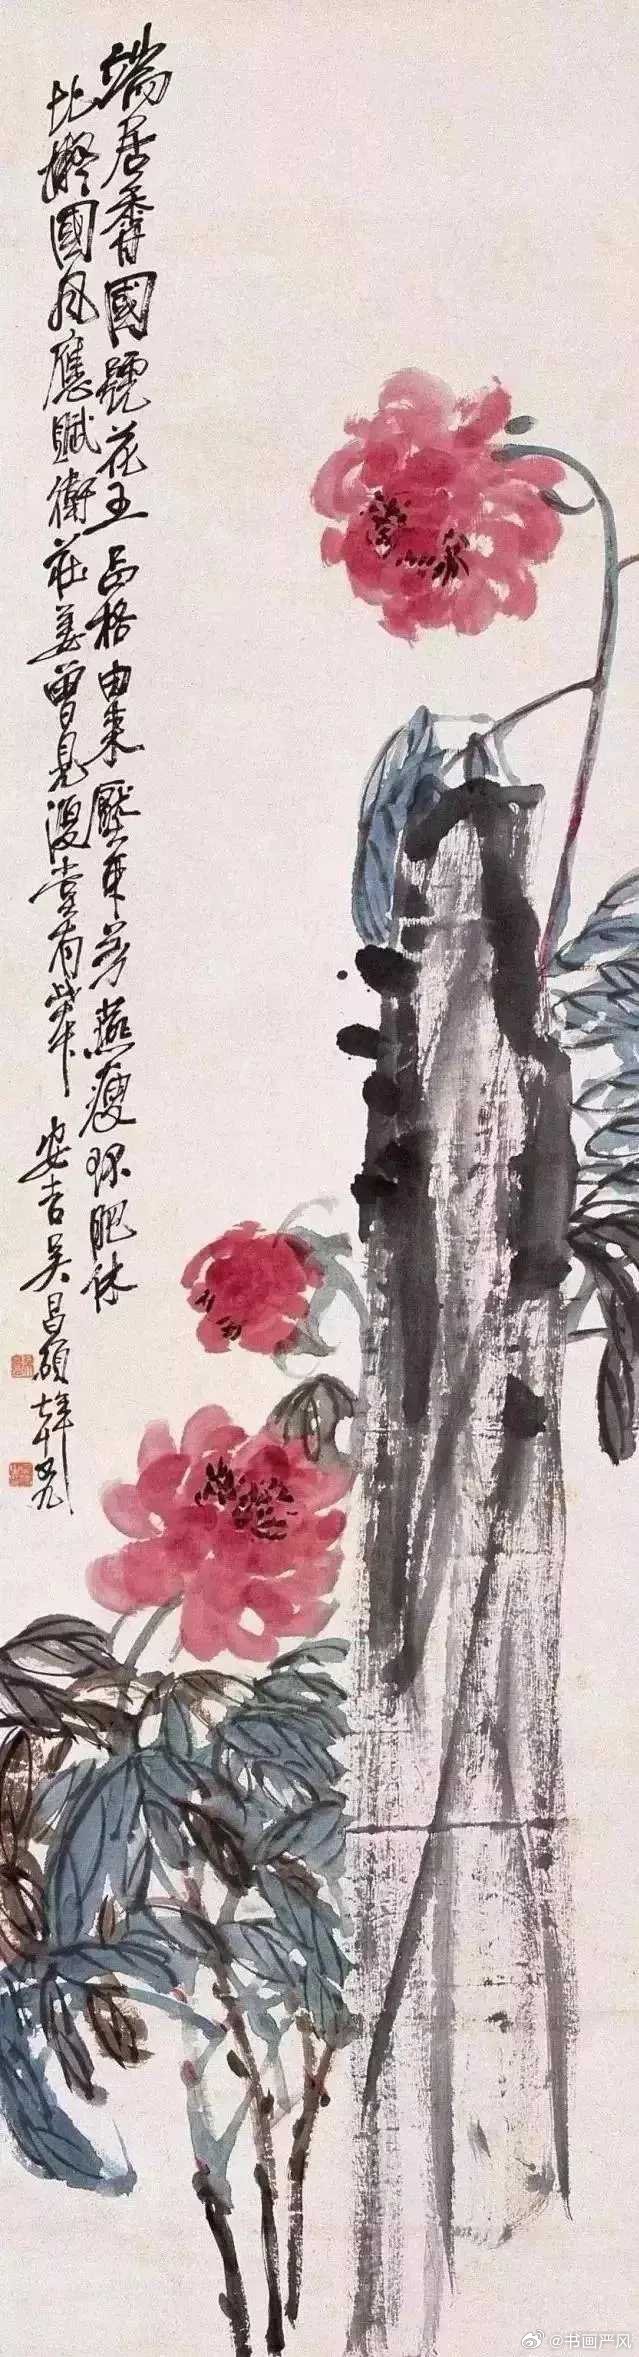 端居香國號花王品格由來壓羣芳燕瘦環肥休
比擬國風應賦衛莊姜曾見復堂有此本 安吉吳昌碩年七十九
@书画严风